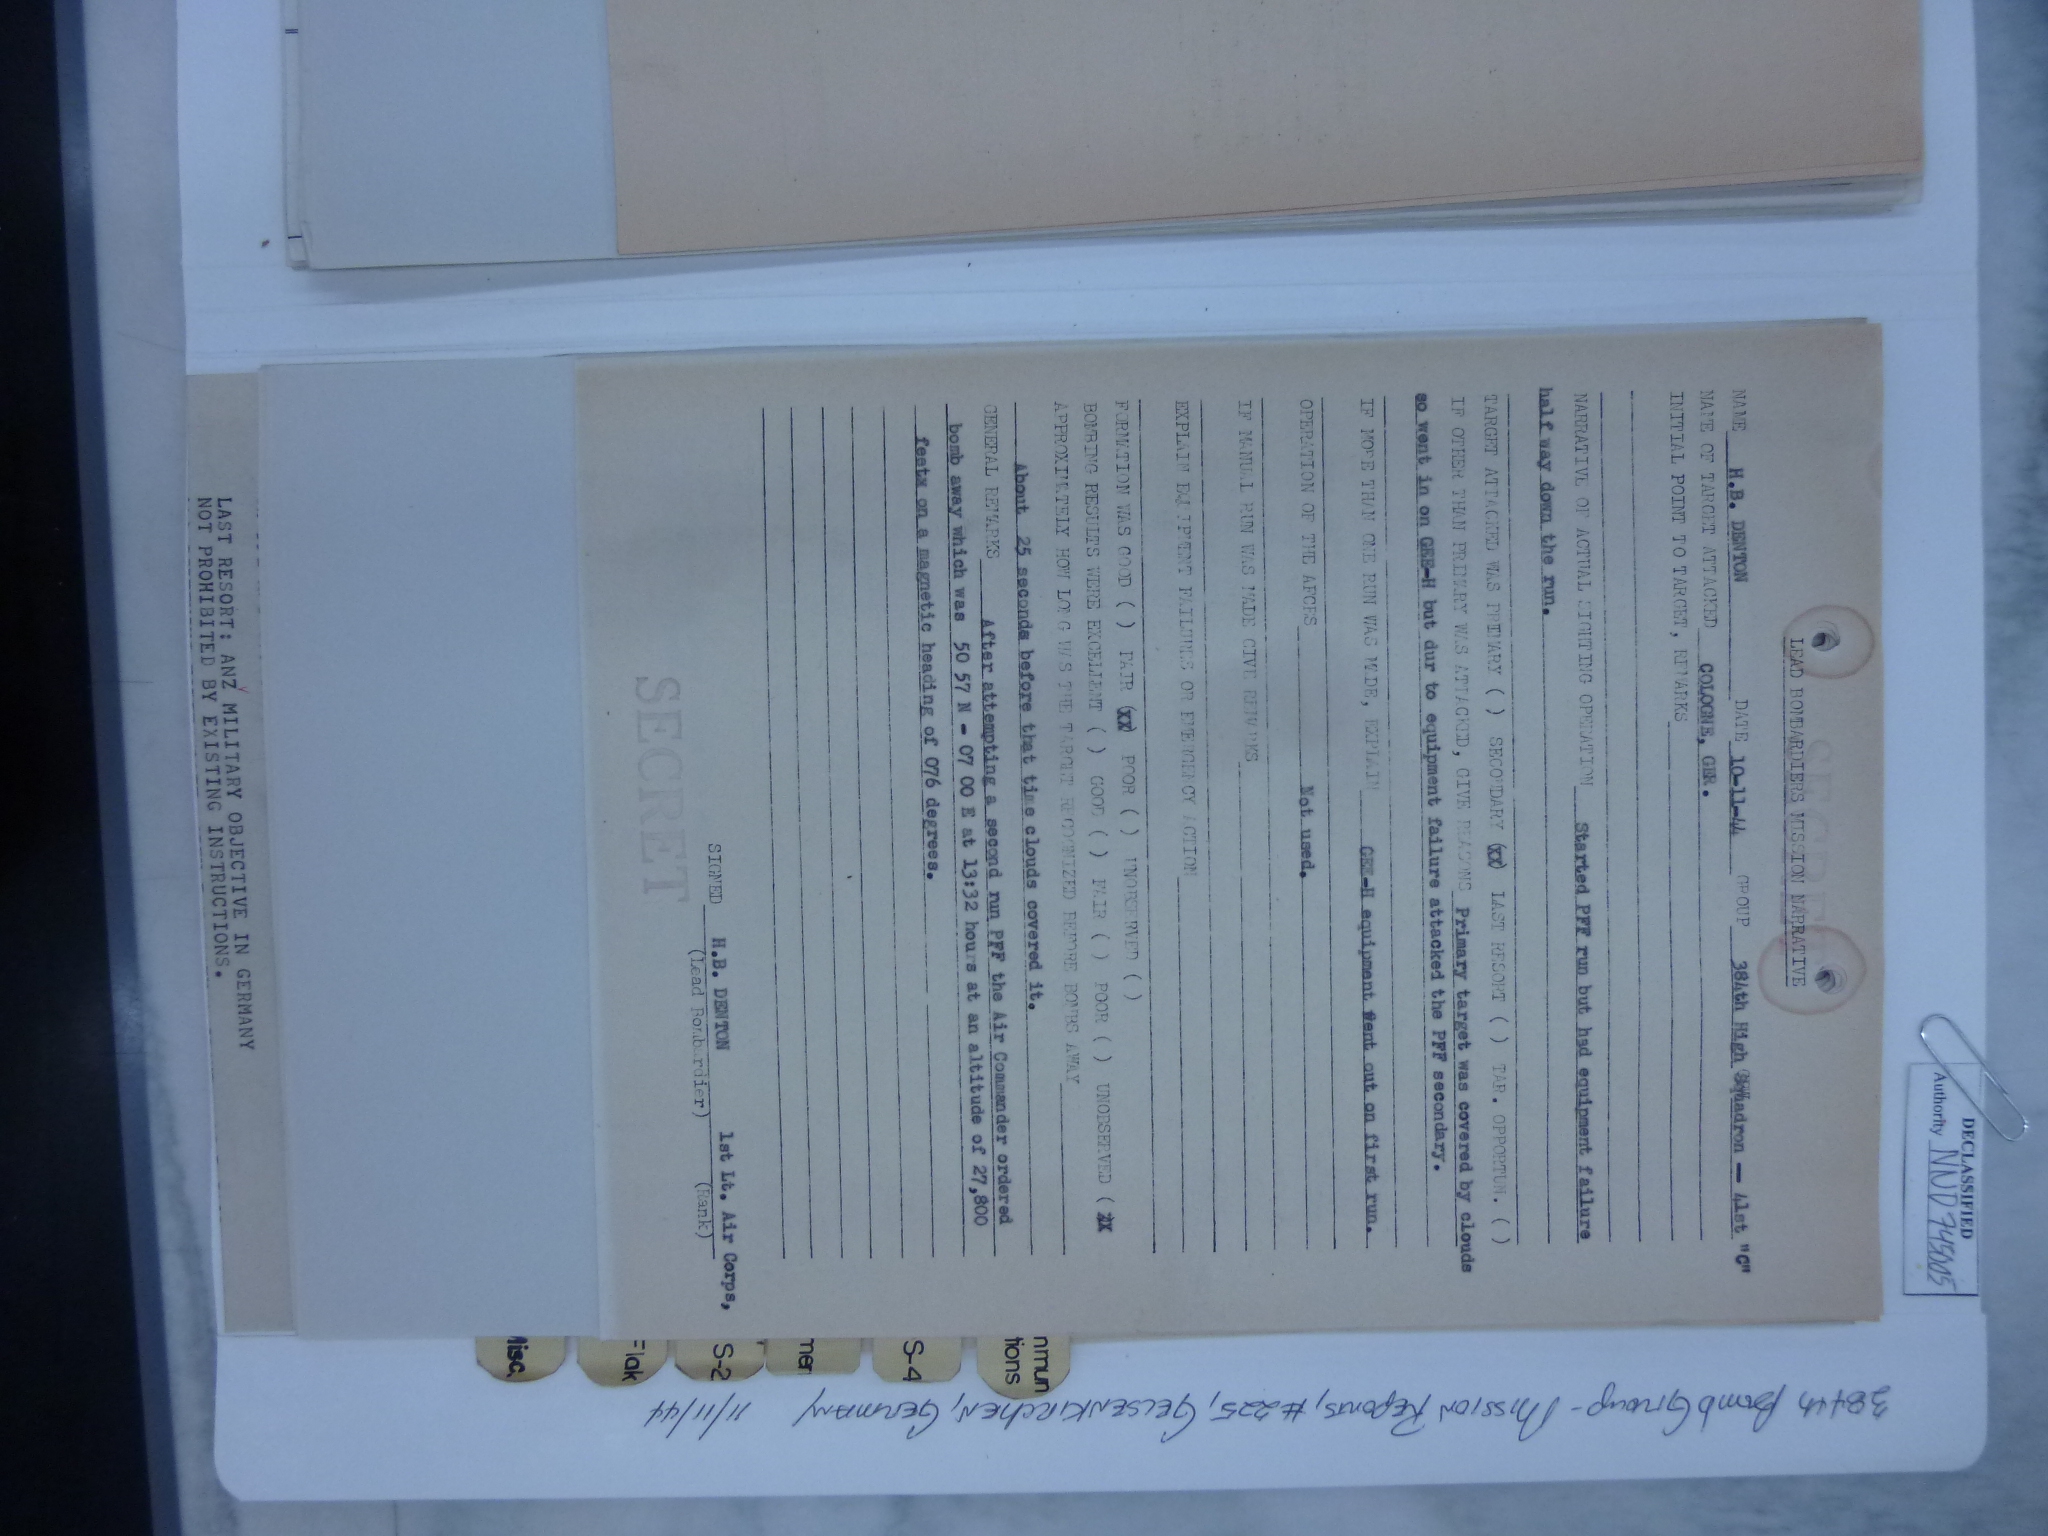 SECRET
LEAD BOMBARDIERS MISSION NARRATIVE
NAME H.B. DENTON DATE 10-11-44 GROUP 384th High Squadron — 41st "C"
NAME OF TARGET ATTACKED COLOGNE, GER.
INITIAL POINT TO TARGET, REMARKS
NARRATIVE OF ACTUAL SIGHTING OPERATION Started PFF run but had equipment failure
half way down the run.
TARGET ATTACKED WAS PRIMARY ( ) SECONDARY (XX) LAST RESORT ( ) TAR. OPPORTUN. ( )
IF OTHER THAN PRIMARY WAS ATTACKED, GIVE REASONS Primary target was covered by clouds
so went in on GEE-H but dur to equipment failure attacked the PFF secondary.
IF MORE THAN ONE RUN WAS MADE, EXPLAIN GEE-H equipment went out on first run.
OPERATION OF THE AFCES Not used.
IF MANUAL RUN WAS MADE GIVE REMARKS
EXPLAIN EQUIPMENT FAILURES OR EMERGENCY ACTION
FORMATION WAS GOOD ( ) FAIR (XX) POOR ( ) UNOBSERVED ( )
BOMBING RESULTS WERE EXCELLENT ( ) GOOD ( ) FAIR ( ) POOR ( ) UNOBSERVED (XX
APPROXIMATELY HOW LONG WAS THE TARGET RECOGNIZED BEFORE BOMBS AWAY
About 25 seconds before that time clouds covered it.
GENERAL REMARKS After attempting a second run PFF the Air Commander ordered
bomb away which was 50 57 N - 07 00 E at 13:32 hours at an altitude of 27,800
feetx on a magnetic heading of 076 degrees.
SIGNED H.B. DENTON 1st Lt. Air Corps,
(Lead Bombardier) (Rank)
SECRET
LAST RESORT: ANZ MILITARY OBJECTIVE IN GERMANY
NOT PROHIBITED BY EXISTING INSTRUCTIONS.
DECLASSIFIED
Authority NND 745005
nmun
tions
S-4
mer
S-2
Flak
Misc.
384th Bomb Group - Mission Reports, #225, Gelsenkirchen, Germany 11/11/44